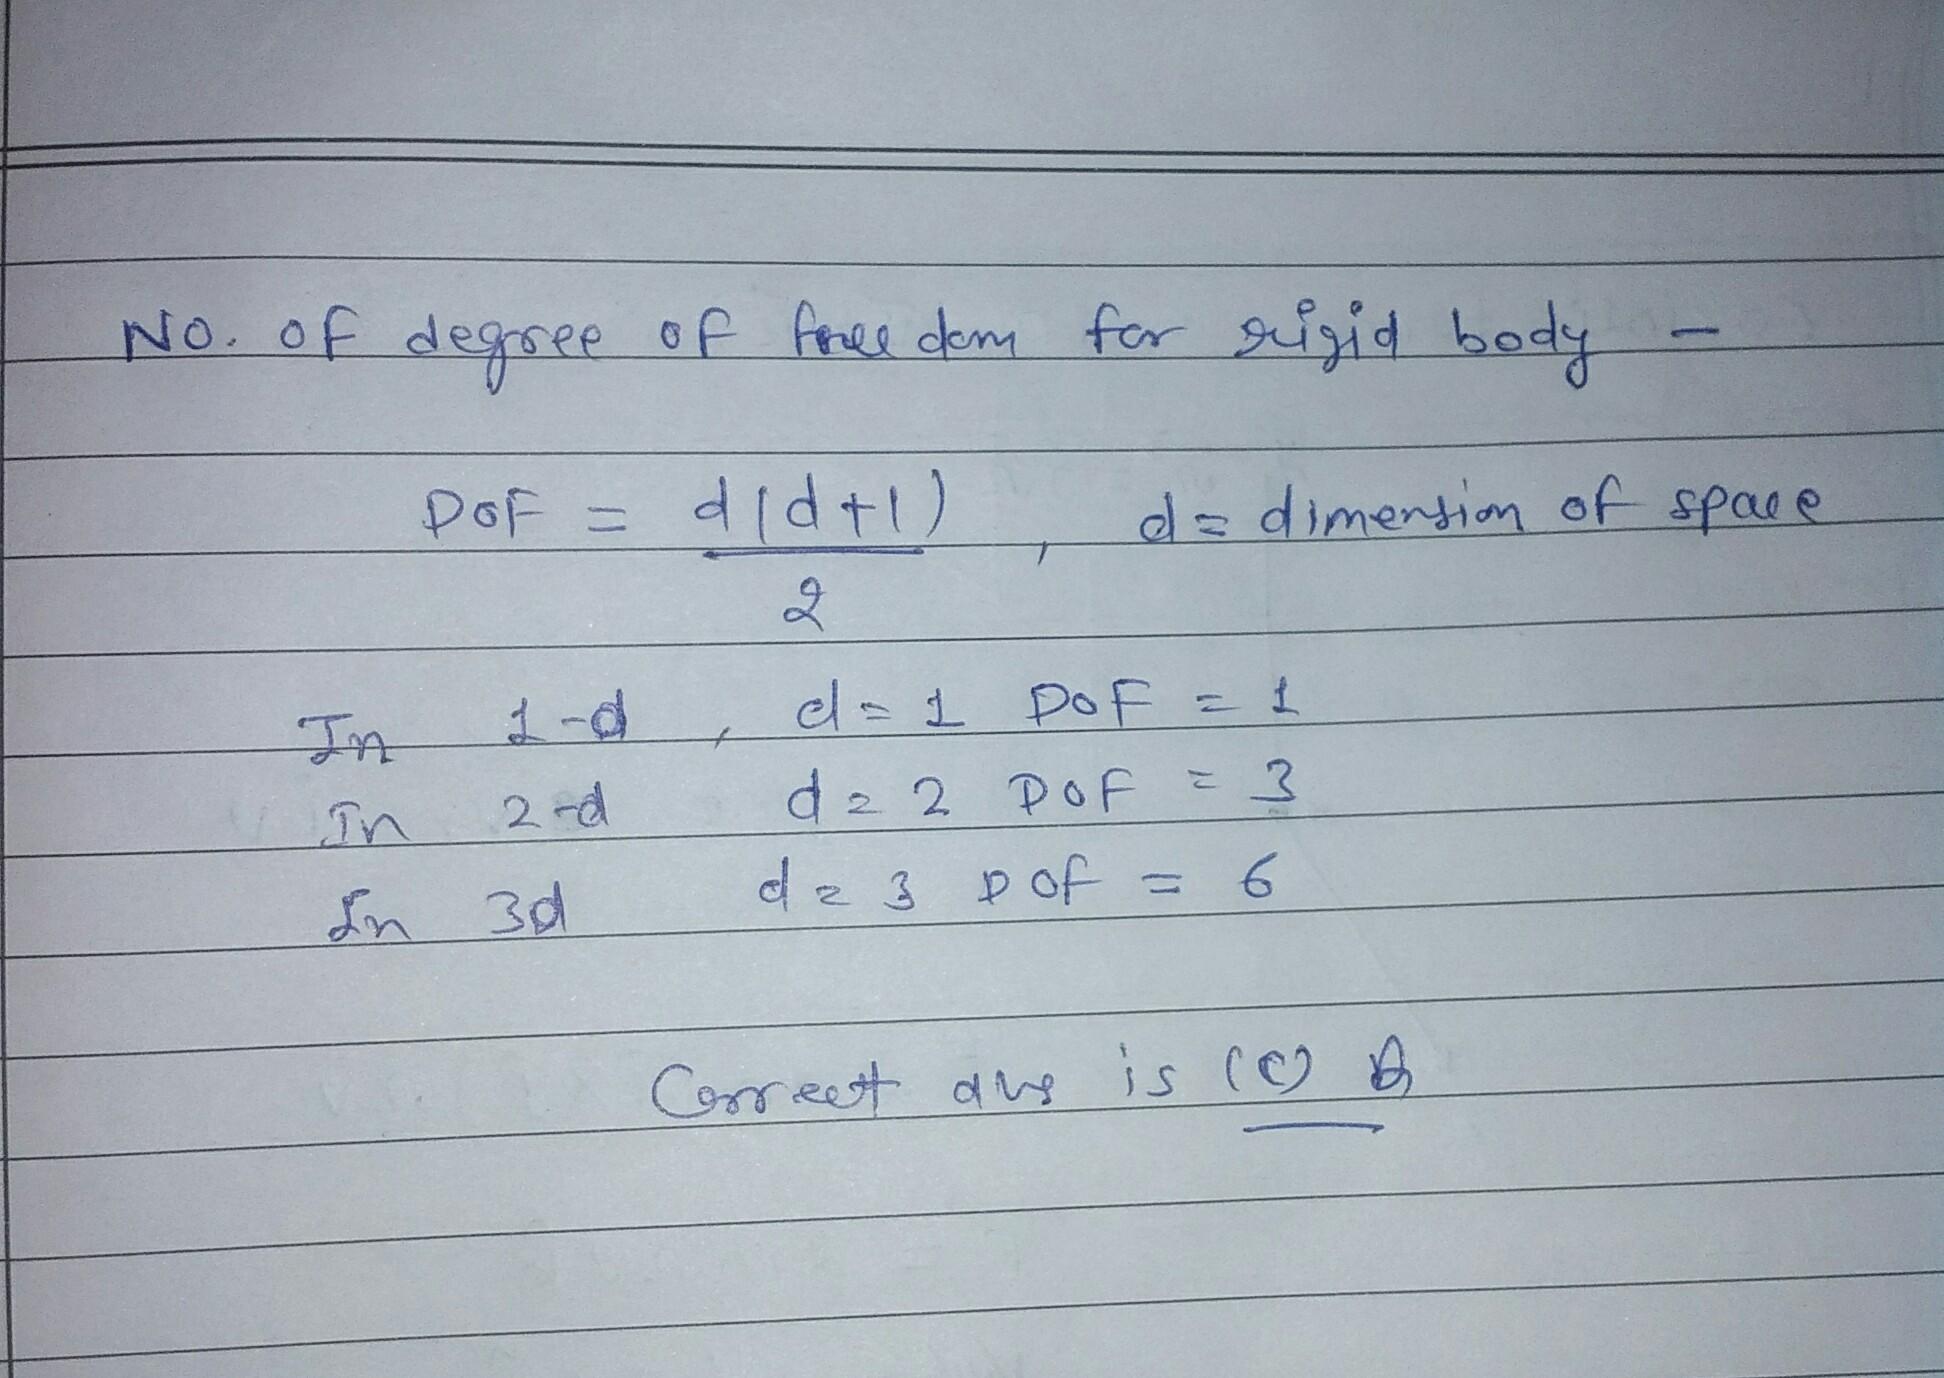 No. of degree of freedom for rigid body -
DOF = d(d+1)/2 , d = dimension of space
In 1-d , d = 1 DOF = 1
In 2-d d = 2 DOF = 3
In 3d d = 3 DOF = 6
Correct ans is (C)